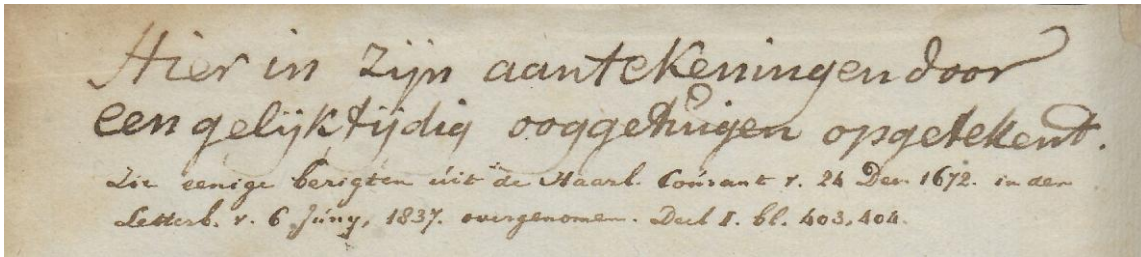 Hier in zijn aantekeningen door
een gelijktijdig ooggetuigen opgetekent.
Zie eenige berigten uit de Haarl. Courant v. 24 Dec. 1672. in den
Letterb. v. 6 Juny, 1837. overgenomen. Deel I. bl. 403, 404.